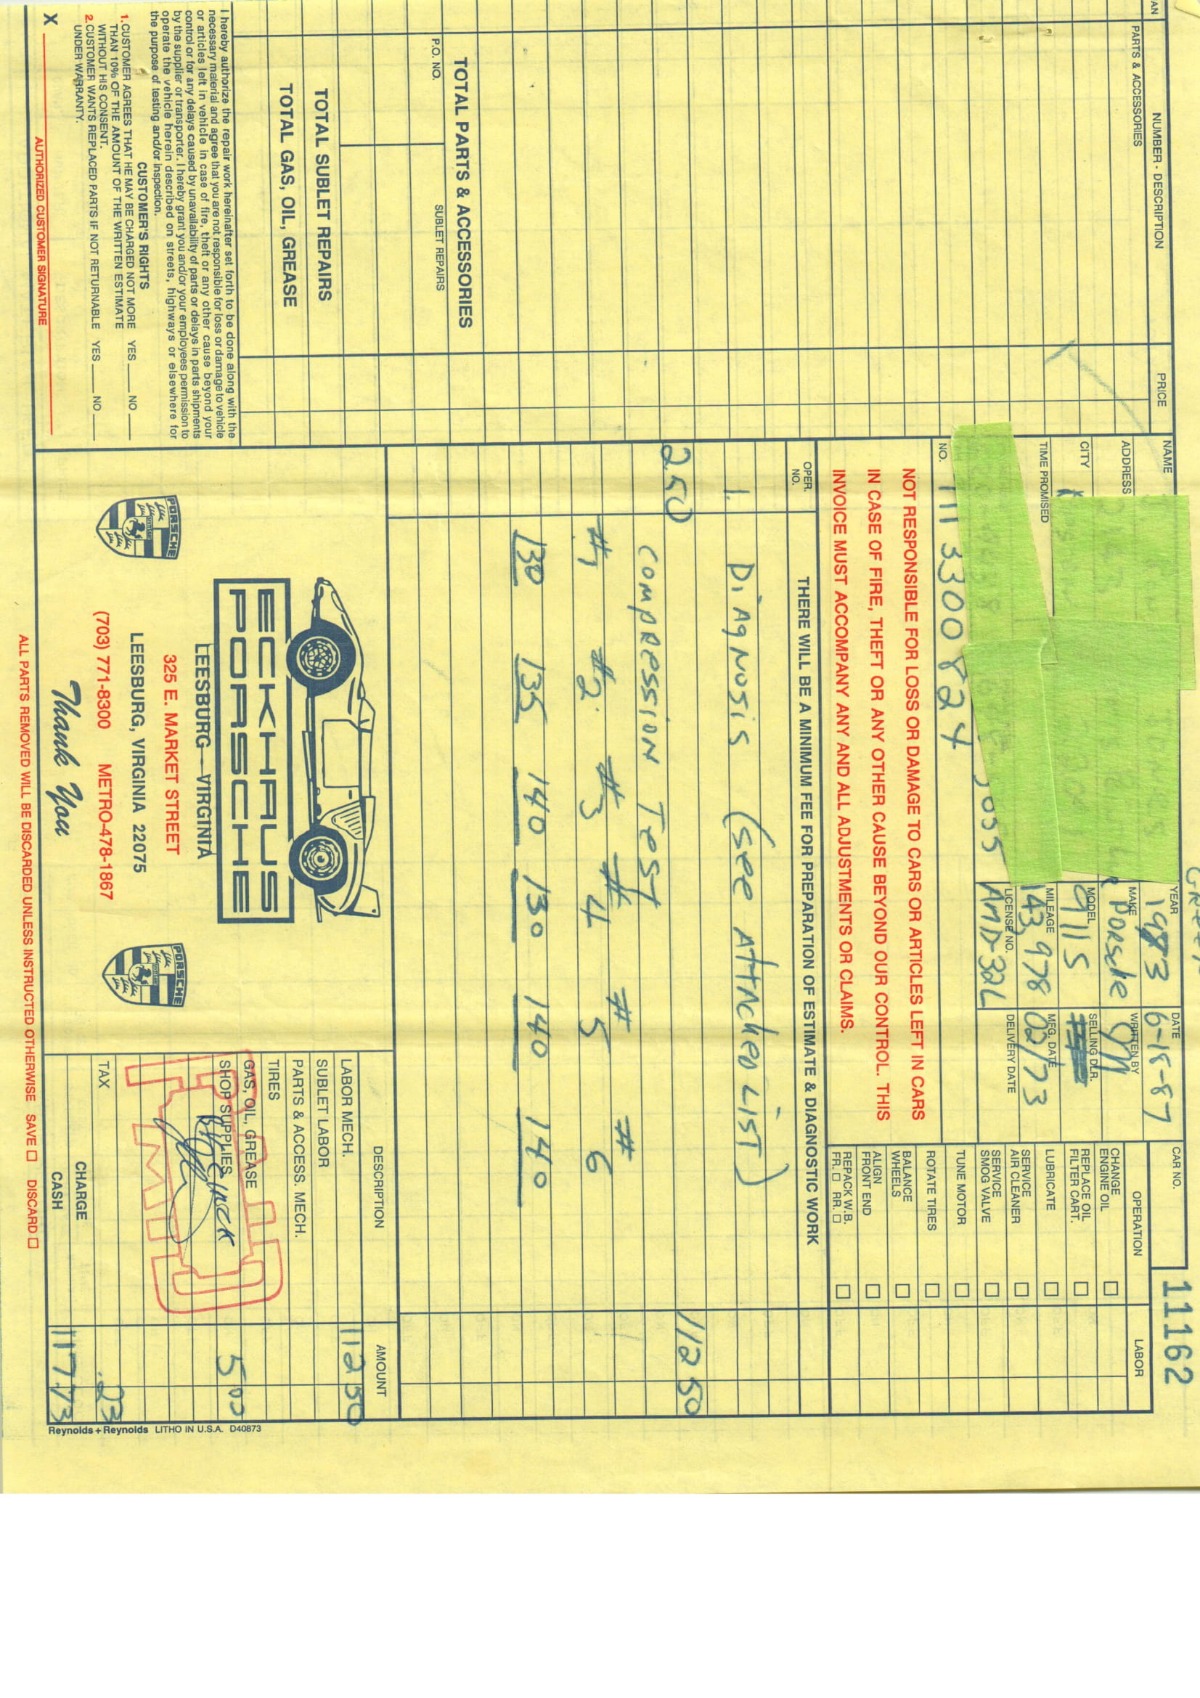 AN
NUMBER - DESCRIPTION
PRICE
PARTS & ACCESSORIES
TOTAL PARTS & ACCESSORIES
P.O. NO.
SUBLET REPAIRS
TOTAL SUBLET REPAIRS
TOTAL GAS, OIL, GREASE
I hereby authorize the repair work hereinafter set forth to be done along with the
necessary material and agree that you are not responsible for loss or damage to vehicle
or articles left in vehicle in case of fire, theft or any other cause beyond your
control or for any delays caused by unavailability of parts or delays in parts shipments
by the supplier or transporter. I hereby grant you and/or your employees permission to
operate the vehicle herein described on streets, highways or elsewhere for
the purpose of testing and/or inspection.
CUSTOMER'S RIGHTS
1. CUSTOMER AGREES THAT HE MAY BE CHARGED NOT MORE YES NO
THAN 10% OF THE AMOUNT OF THE WRITTEN ESTIMATE
WITHOUT HIS CONSENT.
2. CUSTOMER WANTS REPLACED PARTS IF NOT RETURNABLE YES NO
UNDER WARRANTY.
X
AUTHORIZED CUSTOMER SIGNATURE
CAR NO. 11162
NAME
YEAR 1983
DATE 6-18-87
ADDRESS
MAKE Porsche
WRITTEN BY
CITY
MODEL 911S
SELLING DLR.
TIME PROMISED
MILEAGE 143,978
MFG. DATE 02/73
LICENSE NO. AMD-32L
DELIVERY DATE
NO. 9113300824
NOT RESPONSIBLE FOR LOSS OR DAMAGE TO CARS OR ARTICLES LEFT IN CARS
IN CASE OF FIRE, THEFT OR ANY OTHER CAUSE BEYOND OUR CONTROL. THIS
INVOICE MUST ACCOMPANY ANY AND ALL ADJUSTMENTS OR CLAIMS.
OPERATION
LABOR
CHANGE ENGINE OIL
REPLACE OIL FILTER CART.
LUBRICATE
SERVICE AIR CLEANER
SERVICE SMOG VALVE
TUNE MOTOR
ROTATE TIRES
BALANCE WHEELS
ALIGN FRONT END
REPACK W.B. FR. RR.
OPER. NO.
THERE WILL BE A MINIMUM FEE FOR PREPARATION OF ESTIMATE & DIAGNOSTIC WORK
1. Diagnosis (see Attached List)
250 112 50
Compression Test
#1 #2 #3 #4 #5 #6
130 135 140 130 140 140
ECKHAUS
PORSCHE
LEESBURG - VIRGINIA
325 E. MARKET STREET
LEESBURG, VIRGINIA 22075
(703) 771-8300 METRO-478-1867
Thank You
PORSCHE
PORSCHE
DESCRIPTION AMOUNT
LABOR MECH. 112 50
SUBLET LABOR
PARTS & ACCESS. MECH.
TIRES
GAS, OIL, GREASE
SHOP SUPPLIES 5 00
PAID
TAX .23
CHARGE
CASH 117.73
ALL PARTS REMOVED WILL BE DISCARDED UNLESS INSTRUCTED OTHERWISE SAVE DISCARD
Reynolds + Reynolds LITHO IN U.S.A. D40873